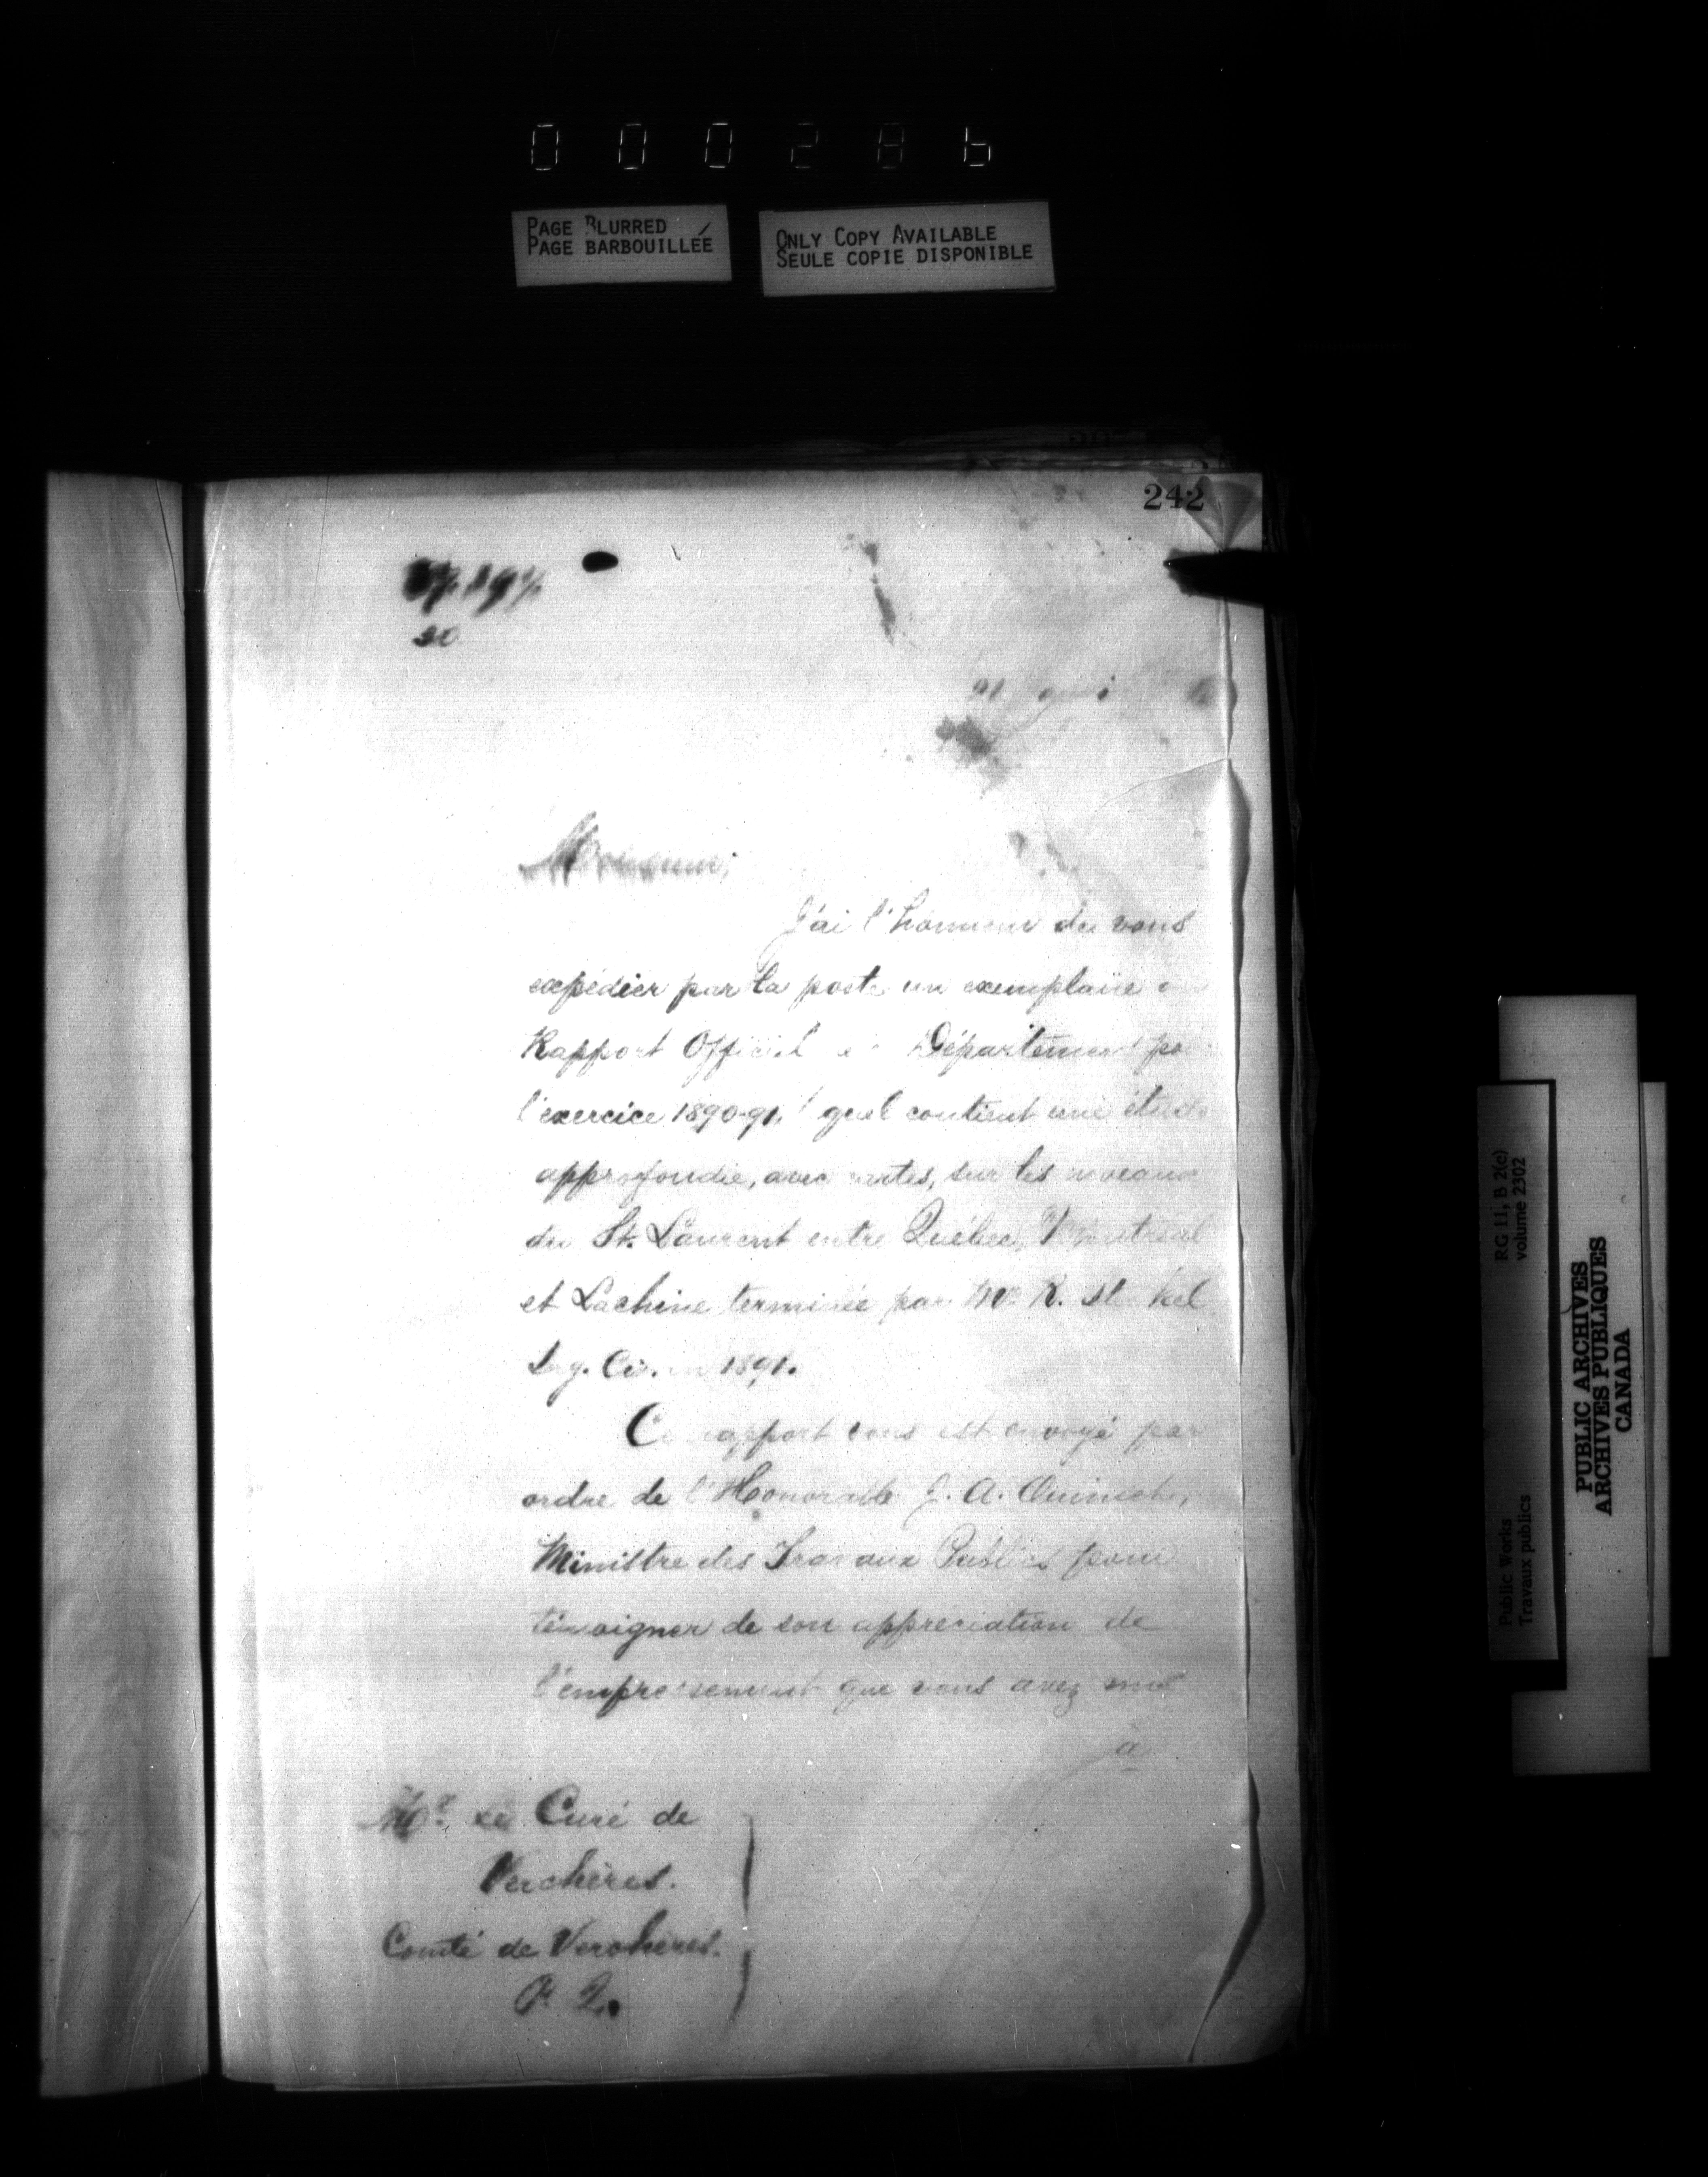 PAGE BLURRED
PAGE BARBOUILLÉE
ONLY COPY AVAILABLE
SEULE COPIE DISPONIBLE
242
Monsieur,
J'ai l'honneur de vous
expédier par la poste un exemplaire
Rapport Officiel Département
l'exercice 1890-91, quel contient une étude
approfondie, avec cartes, sur les
du St. Laurent entre Québec, Montréal
et Lachine terminée par Mr. R.
1891.
Ce rapport vous est envoyé par
ordre de l'Honorable J. A. Ouimet,
Ministre des Travaux Publics pour
témoigner de son appréciation de
l'empressement que vous avez mis
à
Mr. le Curé de
Verchères.
Comté de Verchères.
P. Q.
RG 11, B 2(c)
volume 2302
Public Works
Travaux publics
PUBLIC ARCHIVES
ARCHIVES PUBLIQUES
CANADA